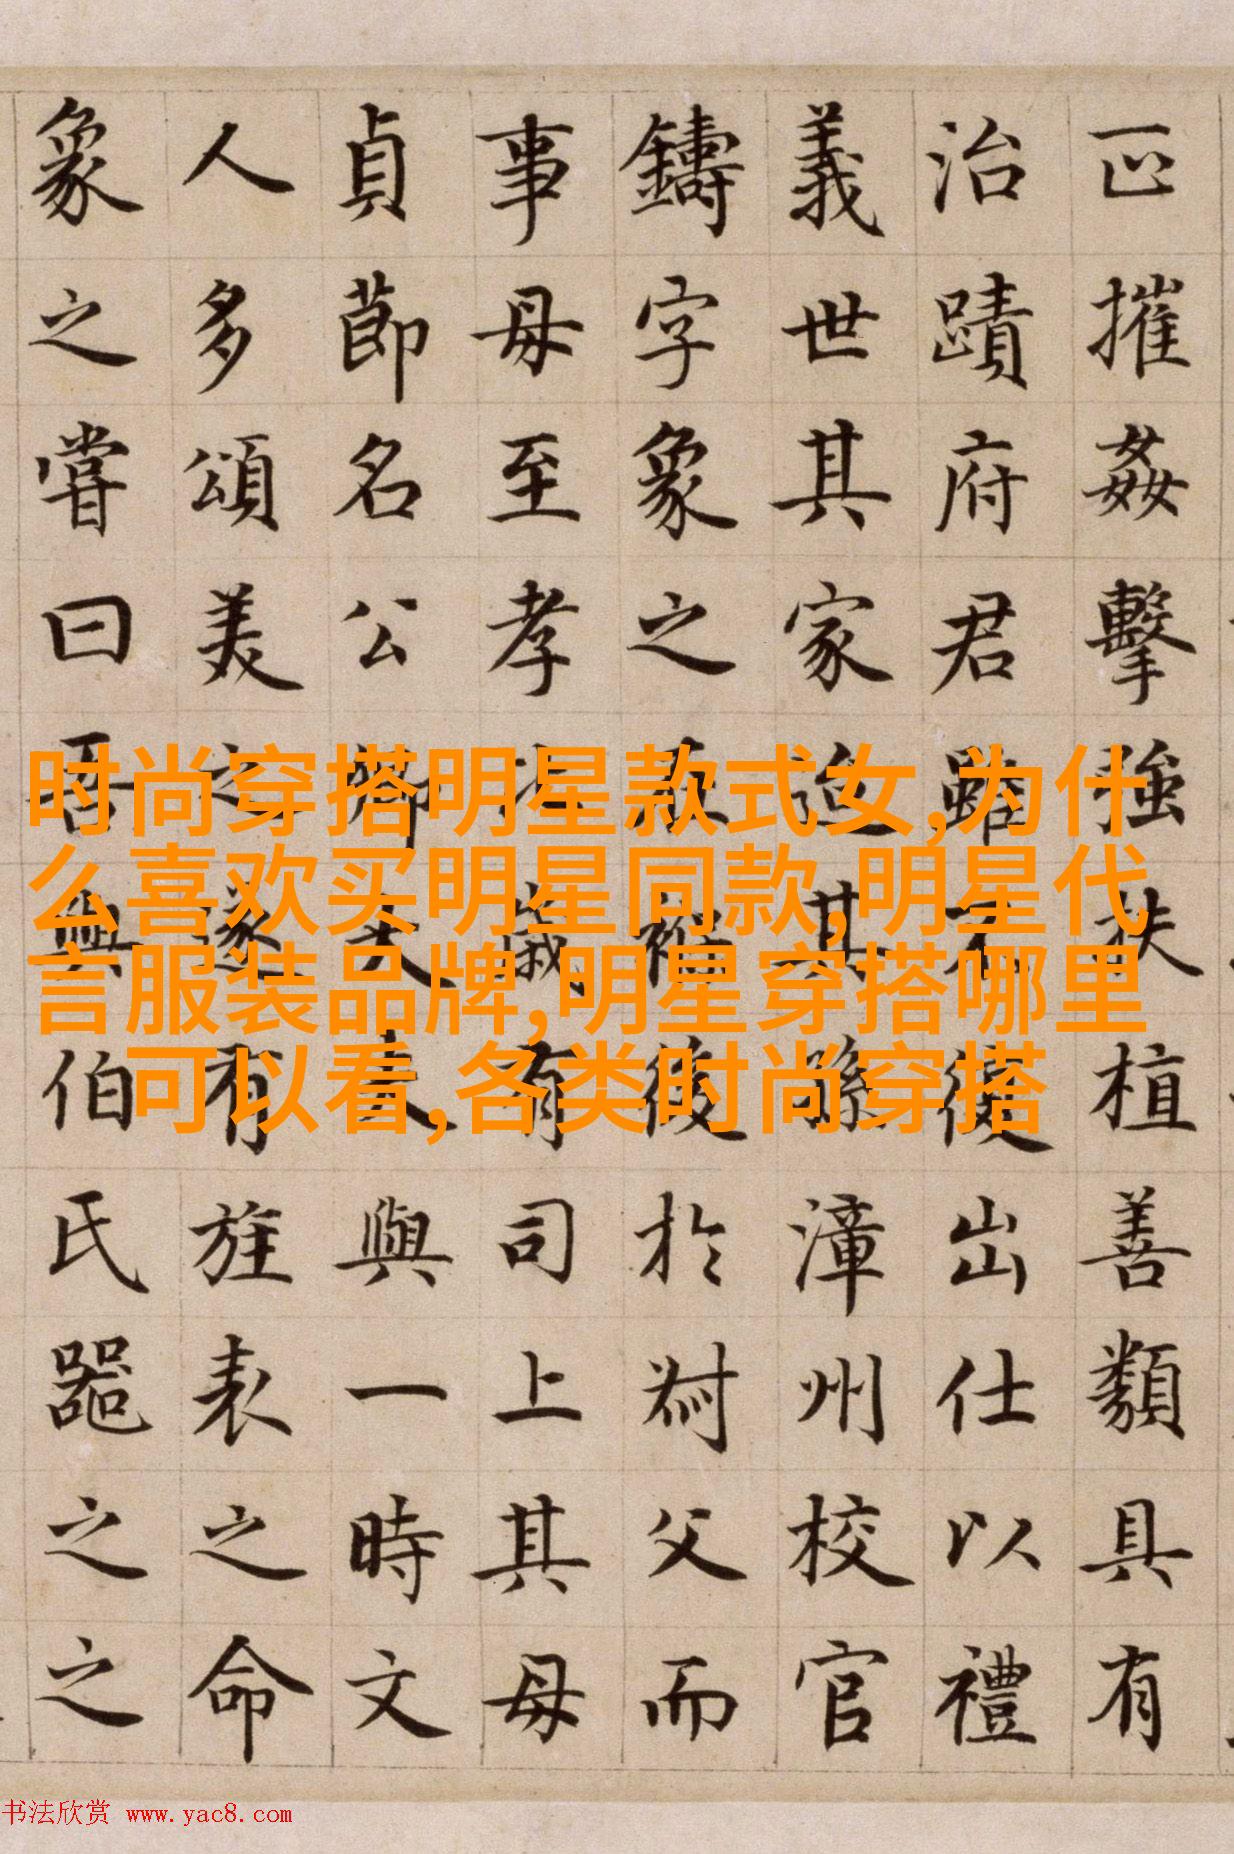 摧姦擊強扶植善類具有
治蹟府君雖不復出仕以禮
義世其家迨其孫漳州校官
鑄字象之後於父而
事母至孝歲有司上其母
貞節名公卿大夫與一時文
人多頌美之遂有旌表之命
象之嘗曰吾與伯氏器之之
时尚穿搭明星款式女,为什
么喜欢买明星同款,明星代
言服装品牌,明星穿搭哪里
可以看,各类时尚穿搭
书法欣赏 www.yac8.com